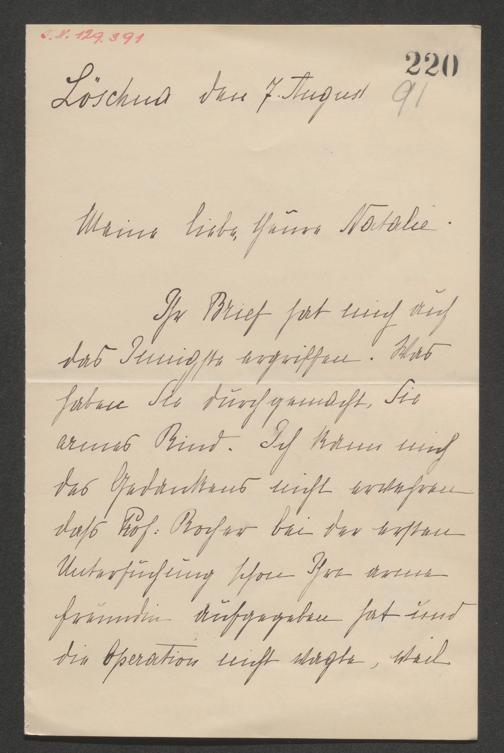 I.N. 129.391
220
Löschna den 7. August
91
Meine liebe, theure Natalie.
Ihr Brief hat mich auf
das Innigste ergriffen. Was
haben Sie durchgemacht, Sie
armes Kind. Ich kann mich
des Gedankens nicht erwehren
daß Prof: Kocher bei der ersten
Untersuchung schon Ihre arme
Freundin aufgegeben hat und
die Operation nicht wagte, weil